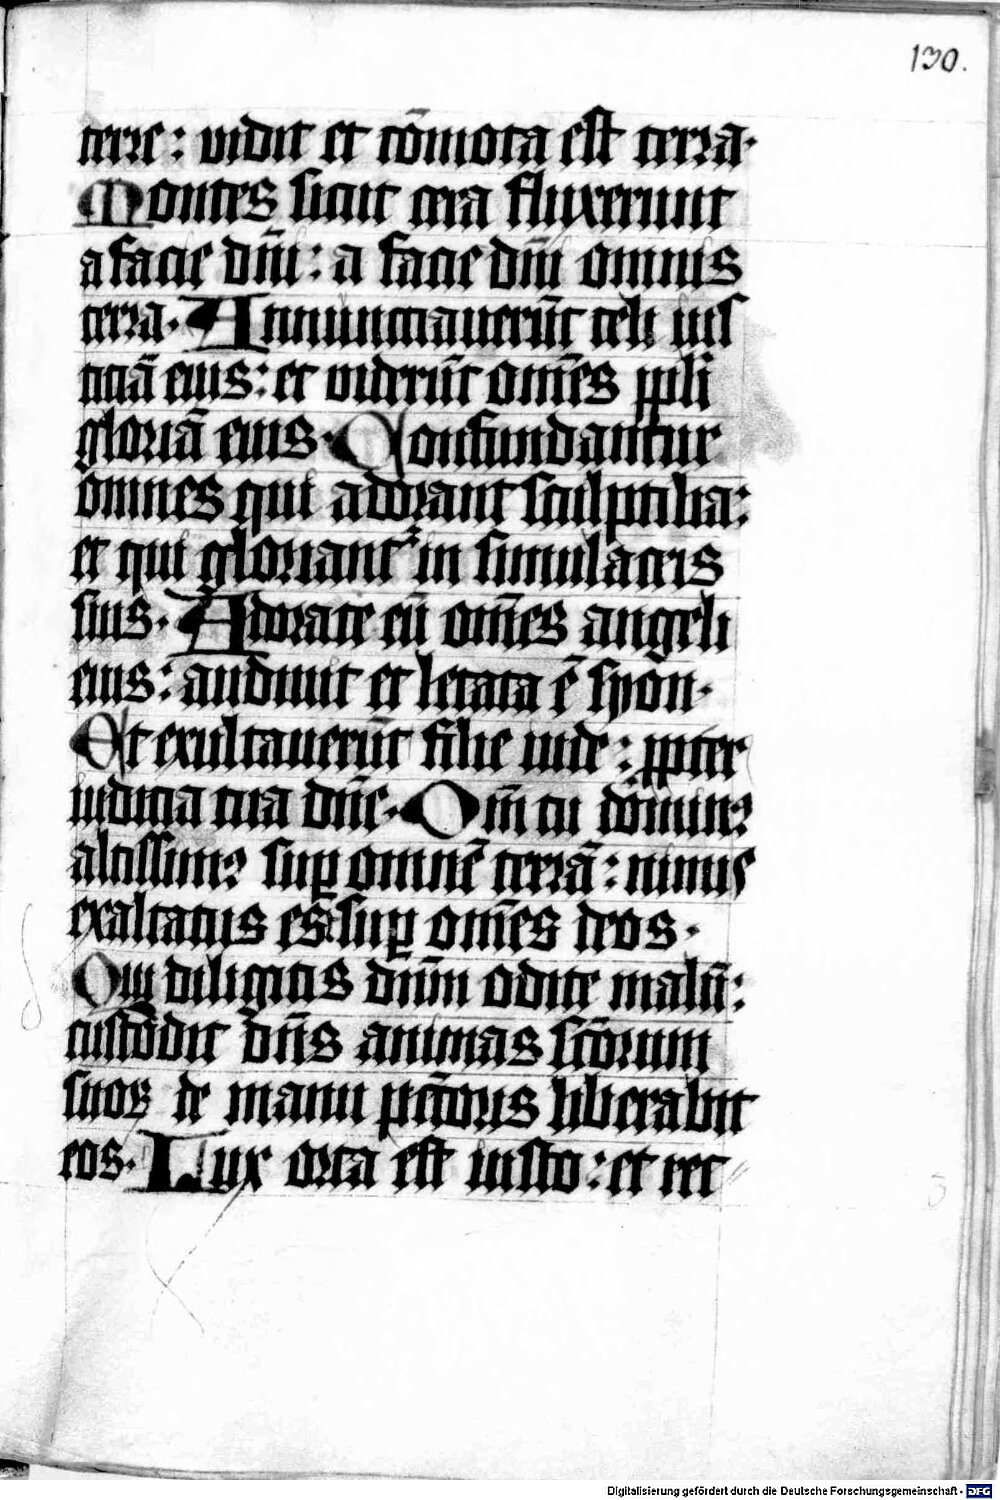 130.
terre: vidit et cōmota est terra.
Montes sicut cera fluxerunt
a facie dn̄i: a facie dn̄i omnis
terra. Annunciauerūt celi ius
ticiā eius: et viderūt om̄es ppl̄i
gloriā eius. Confundantur
omnes qui adorant sculptilia:
et qui gloriantᷣ in simulacris
suis. Adorate eū om̄es angeli
eius: audiuit et letata ē syon.
Et exultauerūt filie iude: ꝓpter
iudicia tua dn̄e. Qm̄ tu dōminꝰ
altissimꝰ suꝑ omnē terrā: nimis
exaltatus es suꝑ om̄es deos.
Qui diligitis dn̄m odite malū:
custōdit dn̄s animas sc̄torum
suoꝝ de manu pctōris liberabit
eos. Lux orta est iusto: et rec
Digitalisierung gefördert durch die Deutsche Forschungsgemeinschaft - DFG